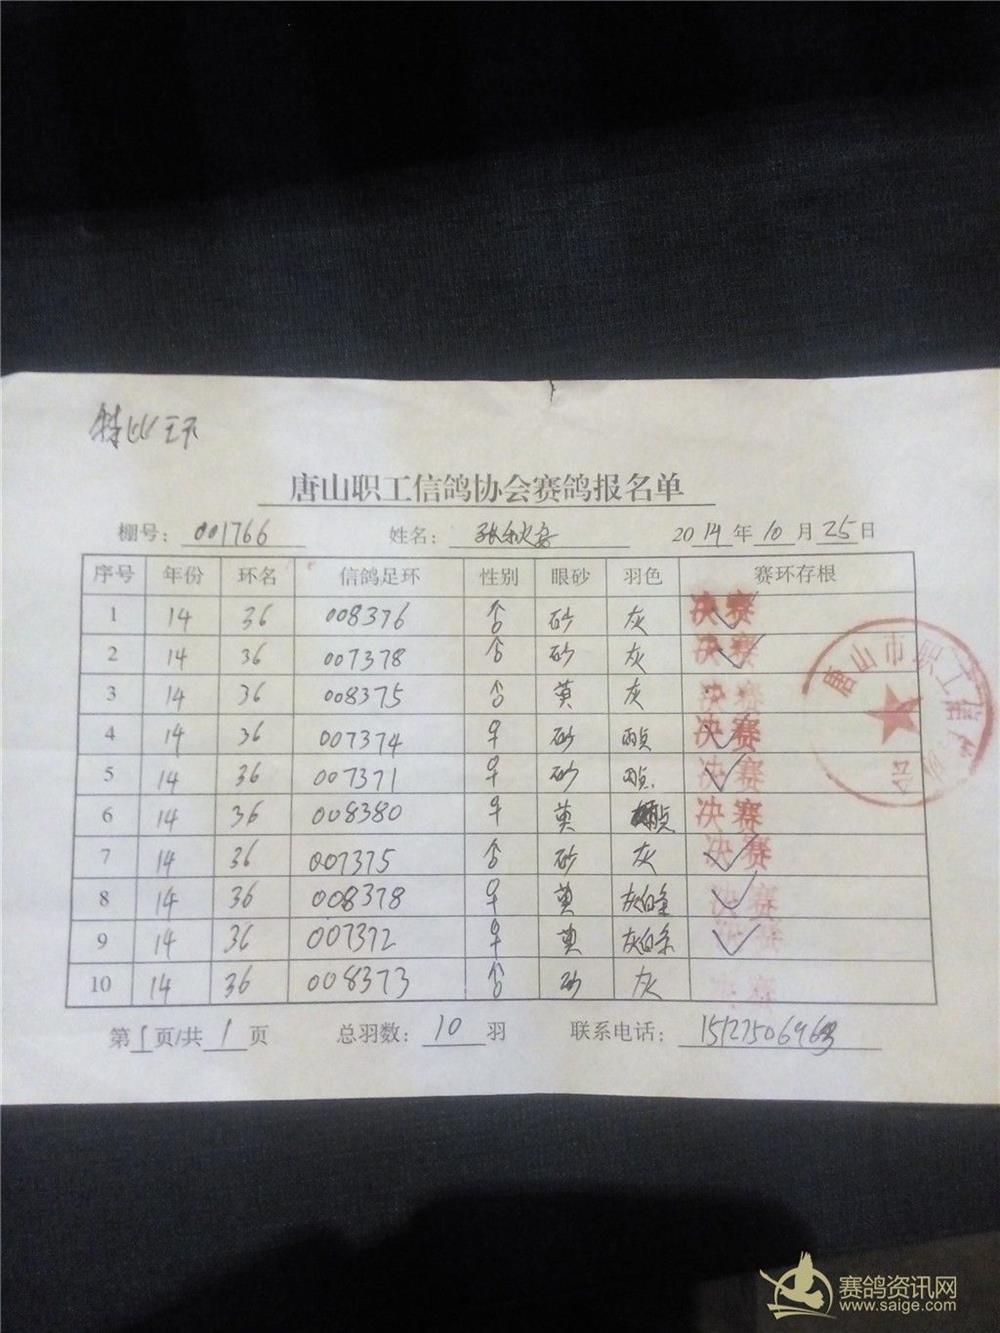 特比环
唐山职工信鸽协会赛鸽报名单
棚号: 001766 姓名: 张秋 2014年10月25日
序号 年份 环名 信鸽足环 性别 眼砂 羽色 赛环存根
1 14 36 008376 ♂ 砂 灰 决赛 ✓
2 14 36 007378 ♂ 砂 灰 决赛 ✓
3 14 36 008375 ♂ 黄 灰 决赛
4 14 36 007374 ♀ 砂 雨点 决赛 ✓
5 14 36 007371 ♀ 砂 雨点 决赛 ✓
6 14 36 008380 ♀ 黄 点 决赛
7 14 36 007375 ♂ 砂 灰 决赛 ✓
8 14 36 008378 ♀ 黄 灰白条 决赛 ✓
9 14 36 007372 ♀ 黄 灰白条 决赛 ✓
10 14 36 008373 ♂ 砂 灰 决赛
唐山市职工信鸽协会
第1页/共1页 总羽数: 10羽 联系电话:
赛鸽资讯网
www.saige.com